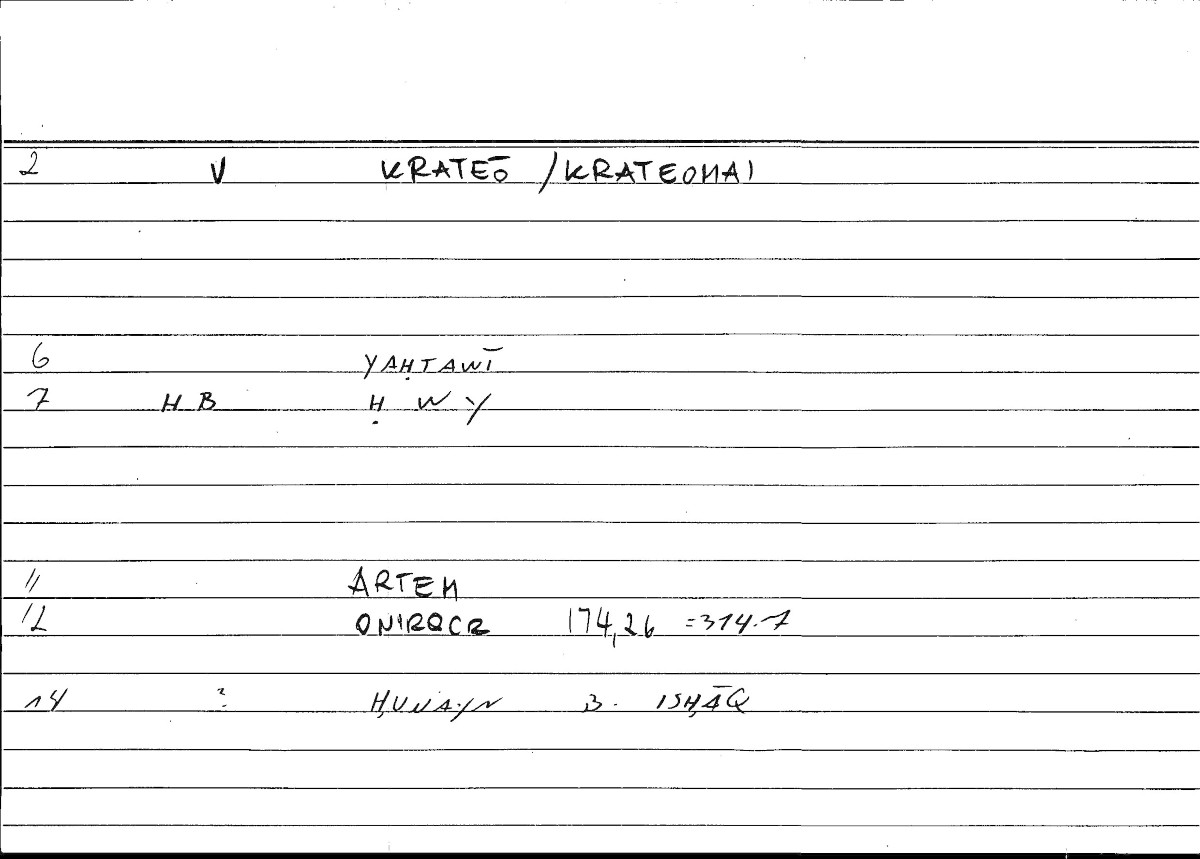 2 V KRATEŌ / KRATEOMAI
6 YAḤTAWĪ
7 HB Ḥ W Y
11 ARTEM
12 ONIROCR 174,26 =314.7
14 ? ḤUNAYN B. ISḤĀQ